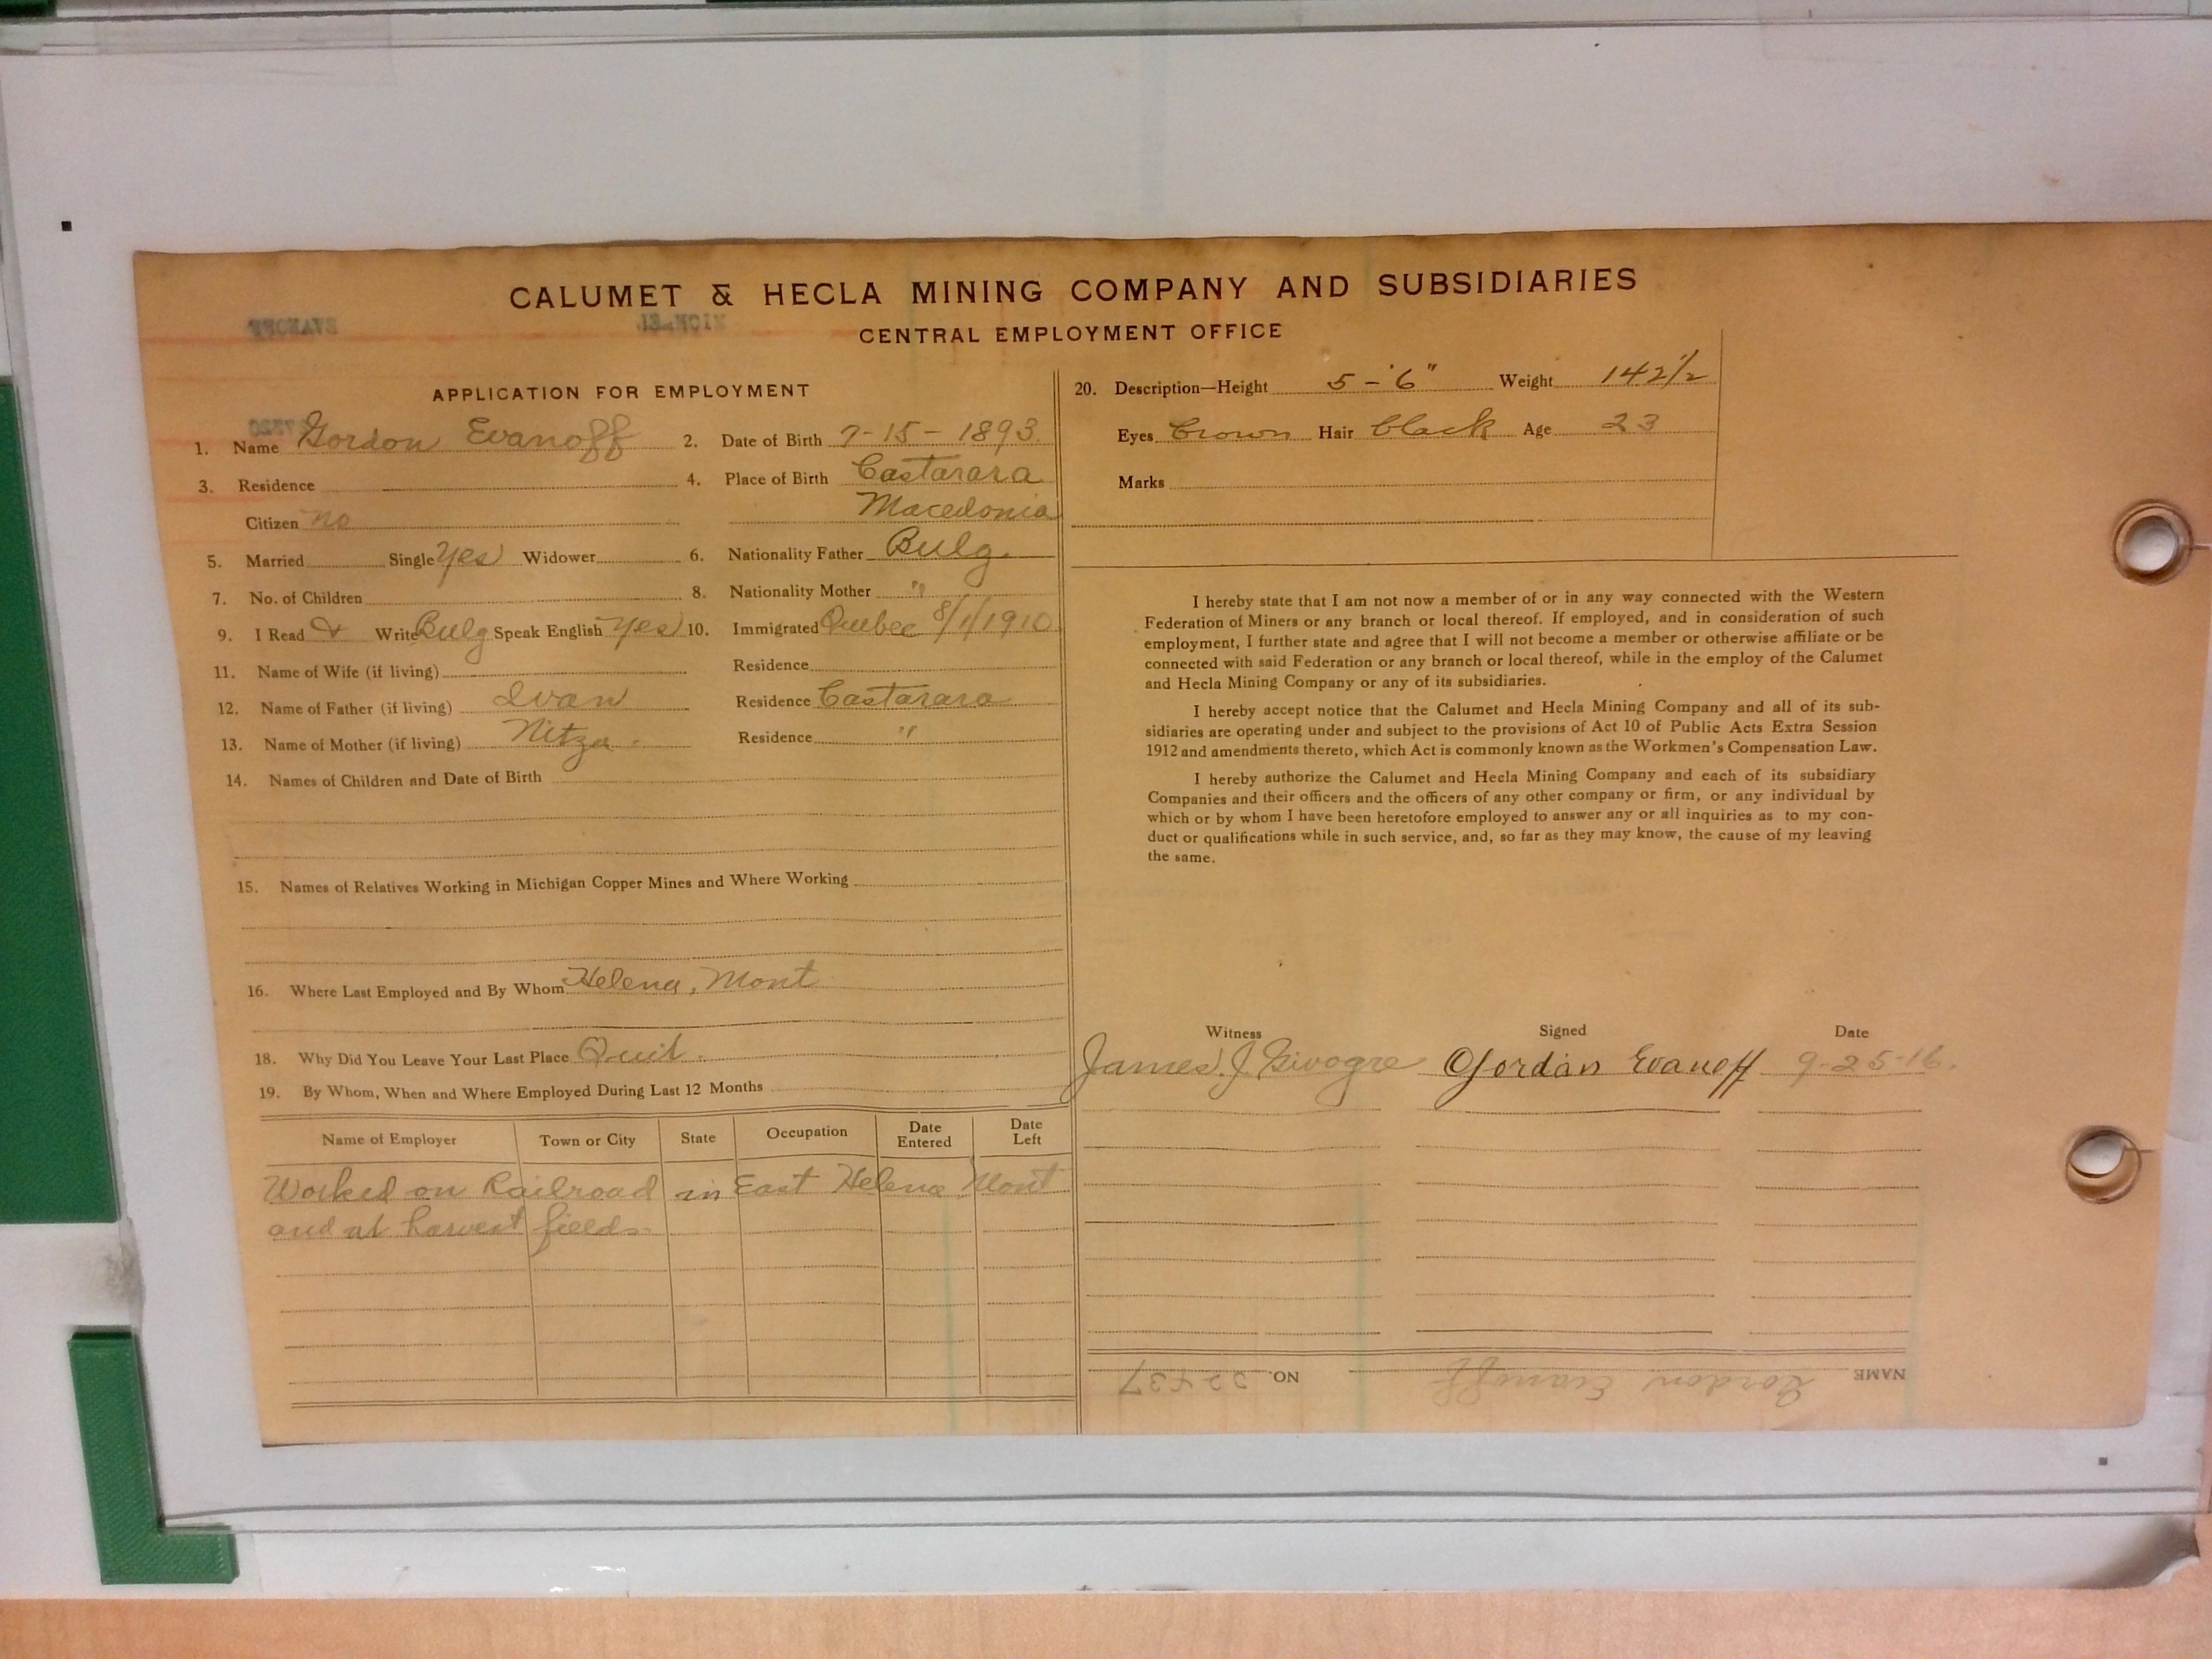 CALUMET & HECLA MINING COMPANY AND SUBSIDIARIES
CENTRAL EMPLOYMENT OFFICE
APPLICATION FOR EMPLOYMENT
1. Name Gordon Evanoff 2. Date of Birth 7-15-1893.
3. Residence 4. Place of Birth Castarara
Citizen no Macedonia
5. Married Single Yes Widower 6. Nationality Father Bulg.
7. No. of Children 8. Nationality Mother "
9. I Read & Write Bulg Speak English Yes 10. Immigrated Quebec 8/1/1910
11. Name of Wife (if living) Residence
12. Name of Father (if living) Ivan Residence Castarara
13. Name of Mother (if living) Nitza Residence "
14. Names of Children and Date of Birth
15. Names of Relatives Working in Michigan Copper Mines and Where Working
16. Where Last Employed and By Whom Helena, Mont
18. Why Did You Leave Your Last Place Quit.
19. By Whom, When and Where Employed During Last 12 Months
Name of Employer Town or City State Occupation Date Entered Date Left
Worked on Railroad in East Helena Mont
and at harvest fields
20. Description—Height 5-6" Weight 142 1/2
Eyes Brown Hair black Age 23
Marks
I hereby state that I am not now a member of or in any way connected with the Western
Federation of Miners or any branch or local thereof. If employed, and in consideration of such
employment, I further state and agree that I will not become a member or otherwise affiliate or be
connected with said Federation or any branch or local thereof, while in the employ of the Calumet
and Hecla Mining Company or any of its subsidiaries.
I hereby accept notice that the Calumet and Hecla Mining Company and all of its sub-
sidiaries are operating under and subject to the provisions of Act 10 of Public Acts Extra Session
1912 and amendments thereto, which Act is commonly known as the Workmen's Compensation Law.
I hereby authorize the Calumet and Hecla Mining Company and each of its subsidiary
Companies and their officers and the officers of any other company or firm, or any individual by
which or by whom I have been heretofore employed to answer any or all inquiries as to my con-
duct or qualifications while in such service, and, so far as they may know, the cause of my leaving
the same.
Witness Signed Date
James J. Gordan Evanoff 9-25-16.
NAME Gordon Evanoff NO.